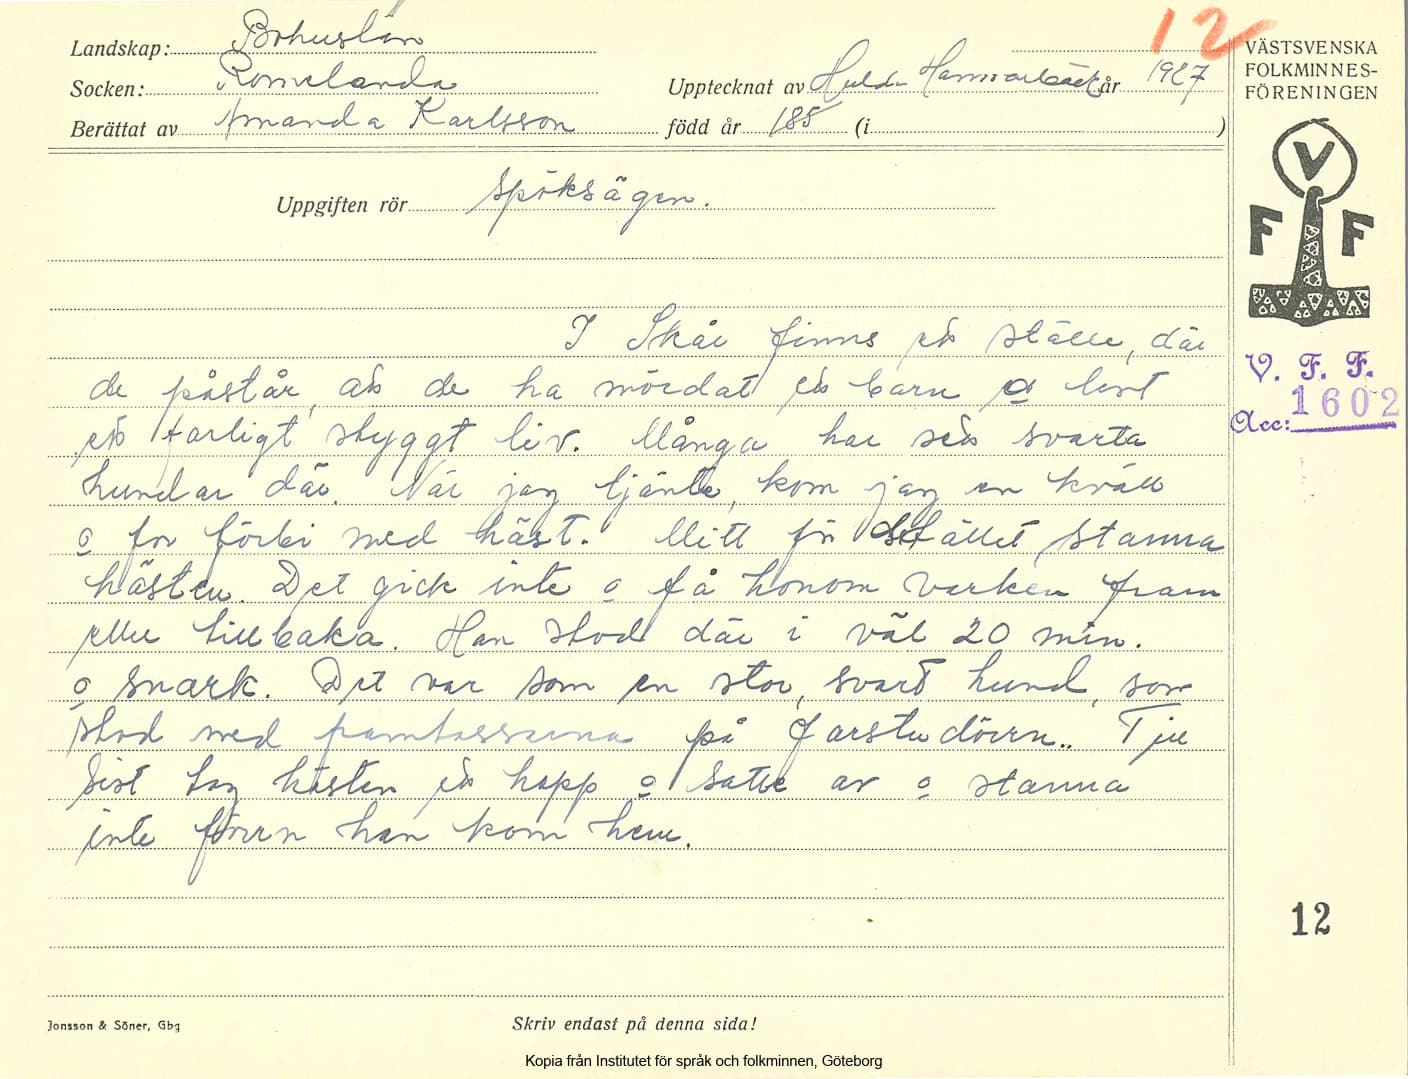 12
Landskap: Bohuslän
Socken: Romelanda
Upptecknat av Hulda Hammarbäck år 1927
Berättat av Amanda Karlsson född år 185 (i )
VÄSTSVENSKA
FOLKMINNES-
FÖRENINGEN
V
F F
Uppgiften rör spöksägen.
V. F. F.
Acc: 1602
I Skår finns ett ställe, där
de påstår, att de ha mördat ett barn o levt
ett farligt styggt liv. Många har sett svarta
hundar där. När jag tjänte, kom jag en kväll
o for förbi med häst. Mitt för stället stanna
hästen. Det gick inte o få honom varken fram
eller tillbaka. Han stod där i väl 20 min.
o snark. Det var som en stor, svart hund, som
stod med framtassarna på farstudörrn. Till
sist tog hästen ett hopp o satte av o stanna
inte förrn han kom hem.
12
Jonsson & Söner, Gbg
Skriv endast på denna sida!
Kopia från Institutet för språk och folkminnen, Göteborg